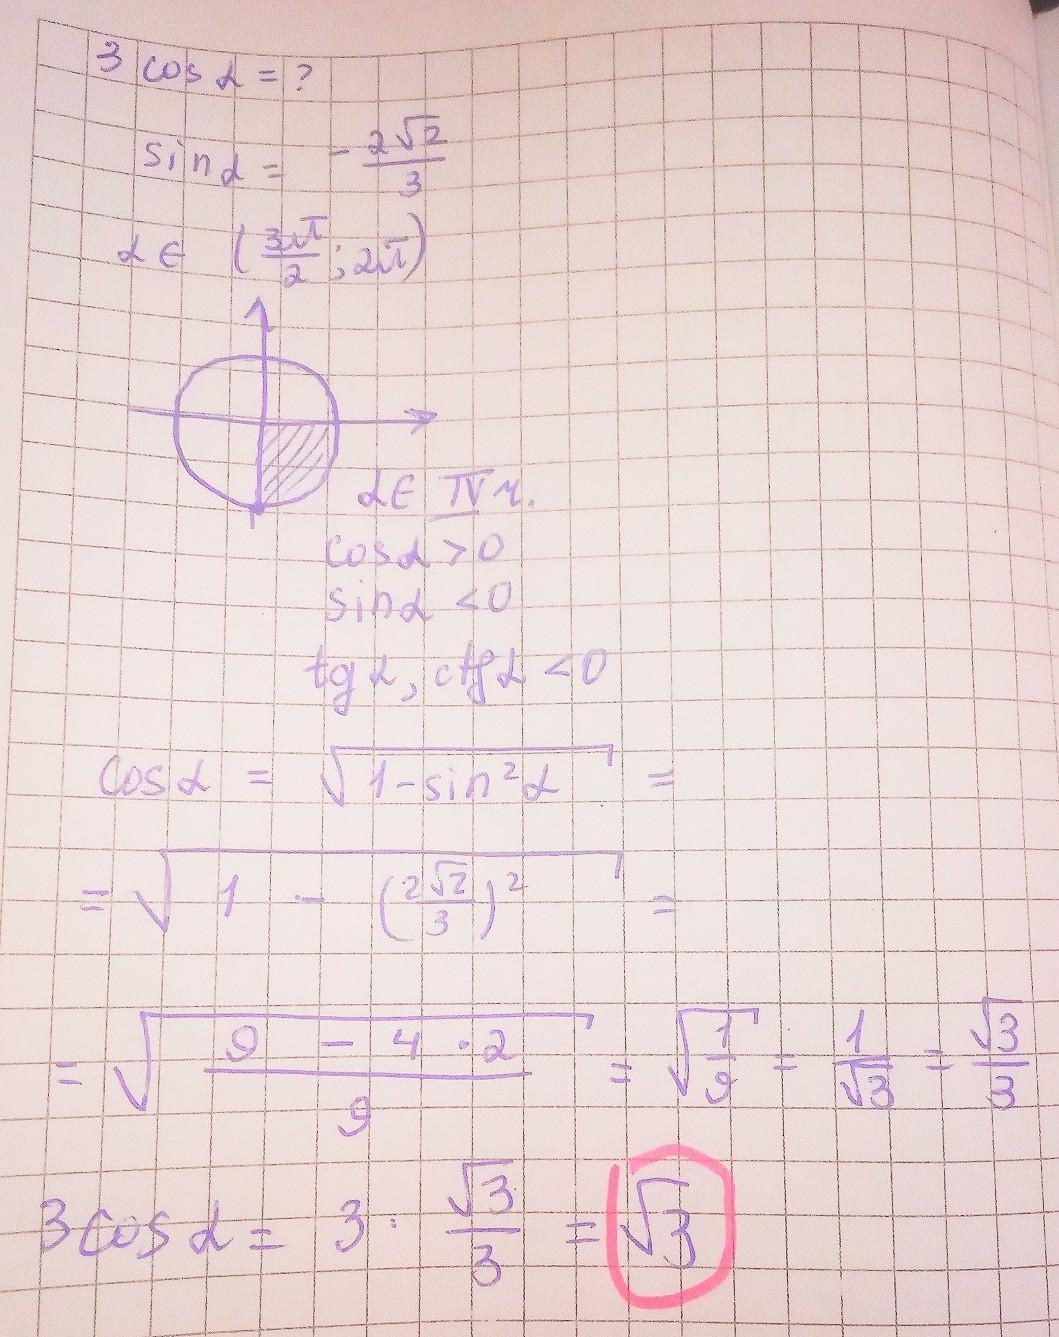 3 cos α = ?
sin α = - 2√2/3
α ∈ (3π/2 ; 2π)
α ∈ IV ч.
cos α > 0
sin α < 0
tg α, ctg α < 0
cos α = √(1 - sin² α) =
= √(1 - (2√2/3)²) =
= √((9 - 4 · 2)/9) = √(1/9) = 1/√3 = √3/3
3 cos α = 3 · √3/3 = √3